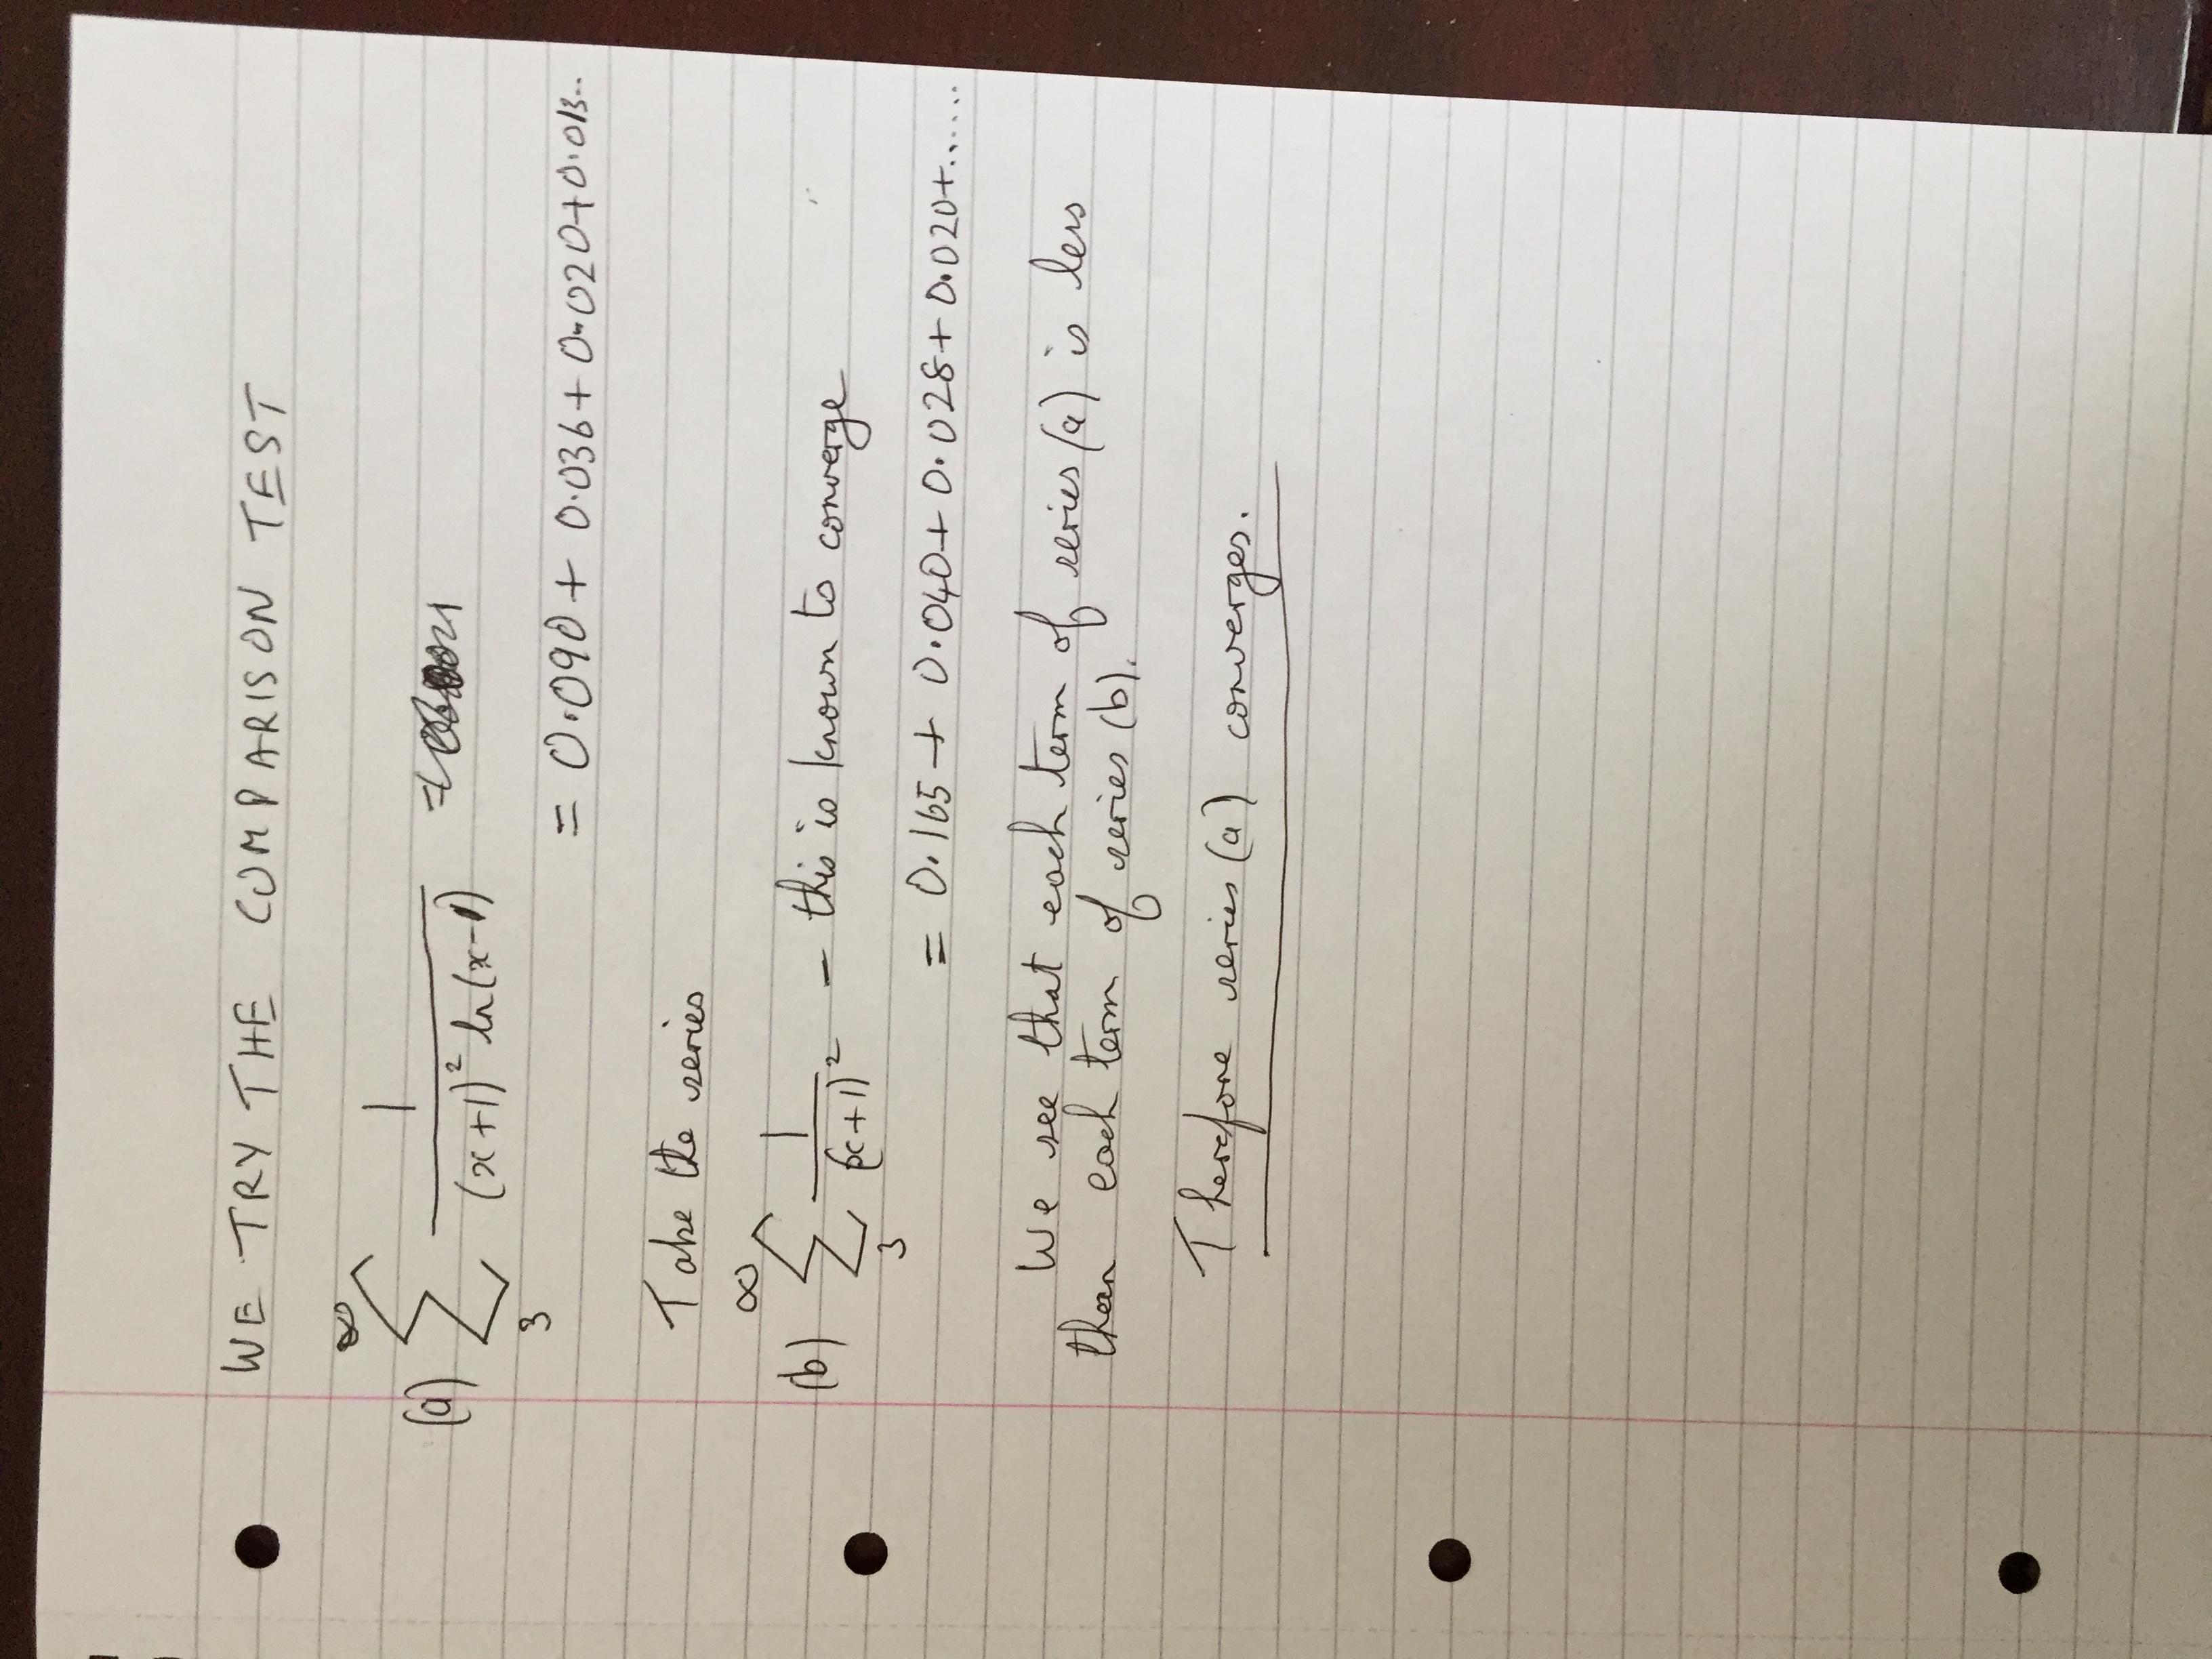 WE TRY THE COMPARISON TEST
(a) ∞ Σ 3 1 / (x+1)² ln(x-1) =
= 0.090 + 0.036 + 0.020 + 0.013..
Take the series
(b) ∞ Σ 3 1 / (x+1)² - this is known to converge
= 0.165 + 0.040 + 0.028 + 0.020 + ......
We see that each term of series (a) is less
than each term of series (b).
Therefore series (a) converges.